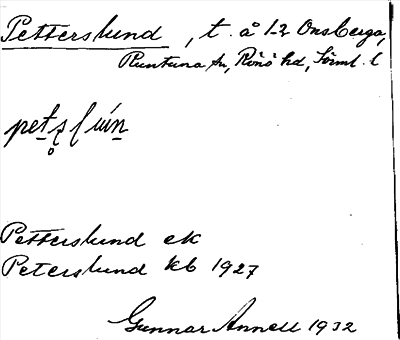 Petterslund, t. å 1-2 Onsberga,
Runtuna sn, Rönö hd, Söml. l
Petterslund ek
Peterslund kb 1927
Gunnar Annell 1932